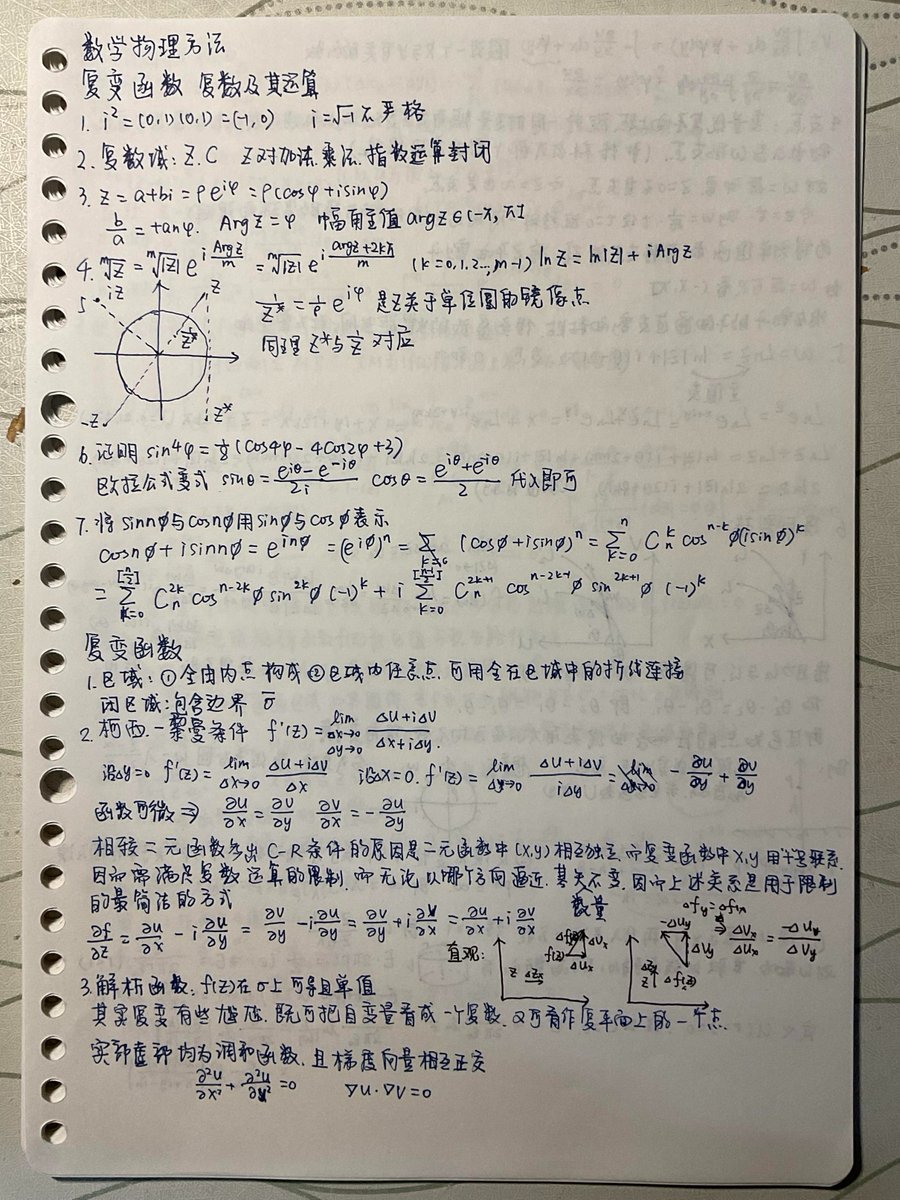 数学物理方法
复变函数 复数及其运算
1. i² = (0,1)(0,1) = (-1,0)  i=√-1不严格
2. 复数域: Z.C  Z对加法乘法.指数运算封闭
3. z = a+bi = ρe^{iφ} = ρ(cosφ+isinφ)
b/a = tanφ.  Argz = φ  幅角主值 argz∈(-π, π]
4. ᵐ√z = ᵐ√|z| e^{i Argz/m} = ᵐ√|z| e^{i (argz+2kπ)/m}  (k=0,1,2...,m-1) lnz = ln|z| + iArgz
5. iz  z  1/z* = 1/ρ e^{iφ} 是z关于单位圆的镜像点
1/z*  同理 z*与1/z 对应
-z  z*
6. 证明 sin⁴φ = 1/8 (cos4φ - 4cos2φ + 3)
欧拉公式变式 sinθ = (e^{iθ} - e^{-iθ})/2i  cosθ = (e^{iθ}+e^{iθ})/2 代入即可
7. 将sinnφ与cosnφ用sinφ与cosφ表示
cosnφ + isinnφ = e^{inφ} = (e^{iφ})ⁿ = Σ_{k=0} (cosφ+isinφ)ⁿ = Σ_{k=0}^{n} C_n^k cos^{n-k}φ(isinφ)^k
= Σ_{k=0}^{[n/2]} C_n^{2k} cos^{n-2k}φ sin^{2k}φ (-1)^k + i Σ_{k=0}^{[(n-1)/2]} C_n^{2k+1} cos^{n-2k-1}φ sin^{2k+1}φ (-1)^k
复变函数
1. 区域: ①全由内点构成 ②区域内任意点可用全在区域中的折线连接
闭区域: 包含边界 σ̄
2. 柯西-黎曼条件 f'(z) = lim_{Δx→0 Δy→0} (ΔU+iΔV)/(Δx+iΔy).
设Δy=0 f'(z) = lim_{Δx→0} (ΔU+iΔV)/Δx  设Δx=0. f'(z) = lim_{Δy→0} (ΔU+iΔV)/(iΔy) = -∂U/∂y + ∂V/∂y
函数可微 ⇒ ∂U/∂x = ∂V/∂y  ∂V/∂x = -∂U/∂y
相较二元函数多出C-R条件的原因是二元函数中(x,y)相互独立,而复变函数中x,y用+号联系
因而需满足复数运算的限制,而无论以哪个方向逼近,其矢不变,因而上述关系是用于限制
的最简洁的方式
∂f/∂z = ∂u/∂x - i∂u/∂y = ∂v/∂y - i∂u/∂y = ∂v/∂y + i∂v/∂x = ∂u/∂x + i∂v/∂x
直观:  z  Δzx  f(z)  ΔUx  ΔVx
数量  ΔUy  ΔVy  z  Δfy = Δfx ⇒ ΔVx/ΔUx = -ΔUy/ΔVy
3. 解析函数: f(z)在σ上可导且单值
其实复变有些尴尬,既可把自变量看成一个复数,又可看作复平面上的一个点.
实部虚部均为调和函数,且梯度向量相互正交
∂²u/∂x² + ∂²u/∂y² = 0  ∇U·∇V = 0